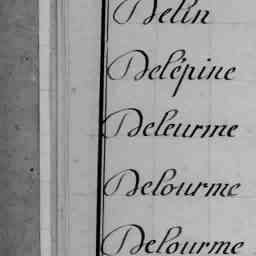 Delin
Delépine
Deleurme
Delourme
Delourme